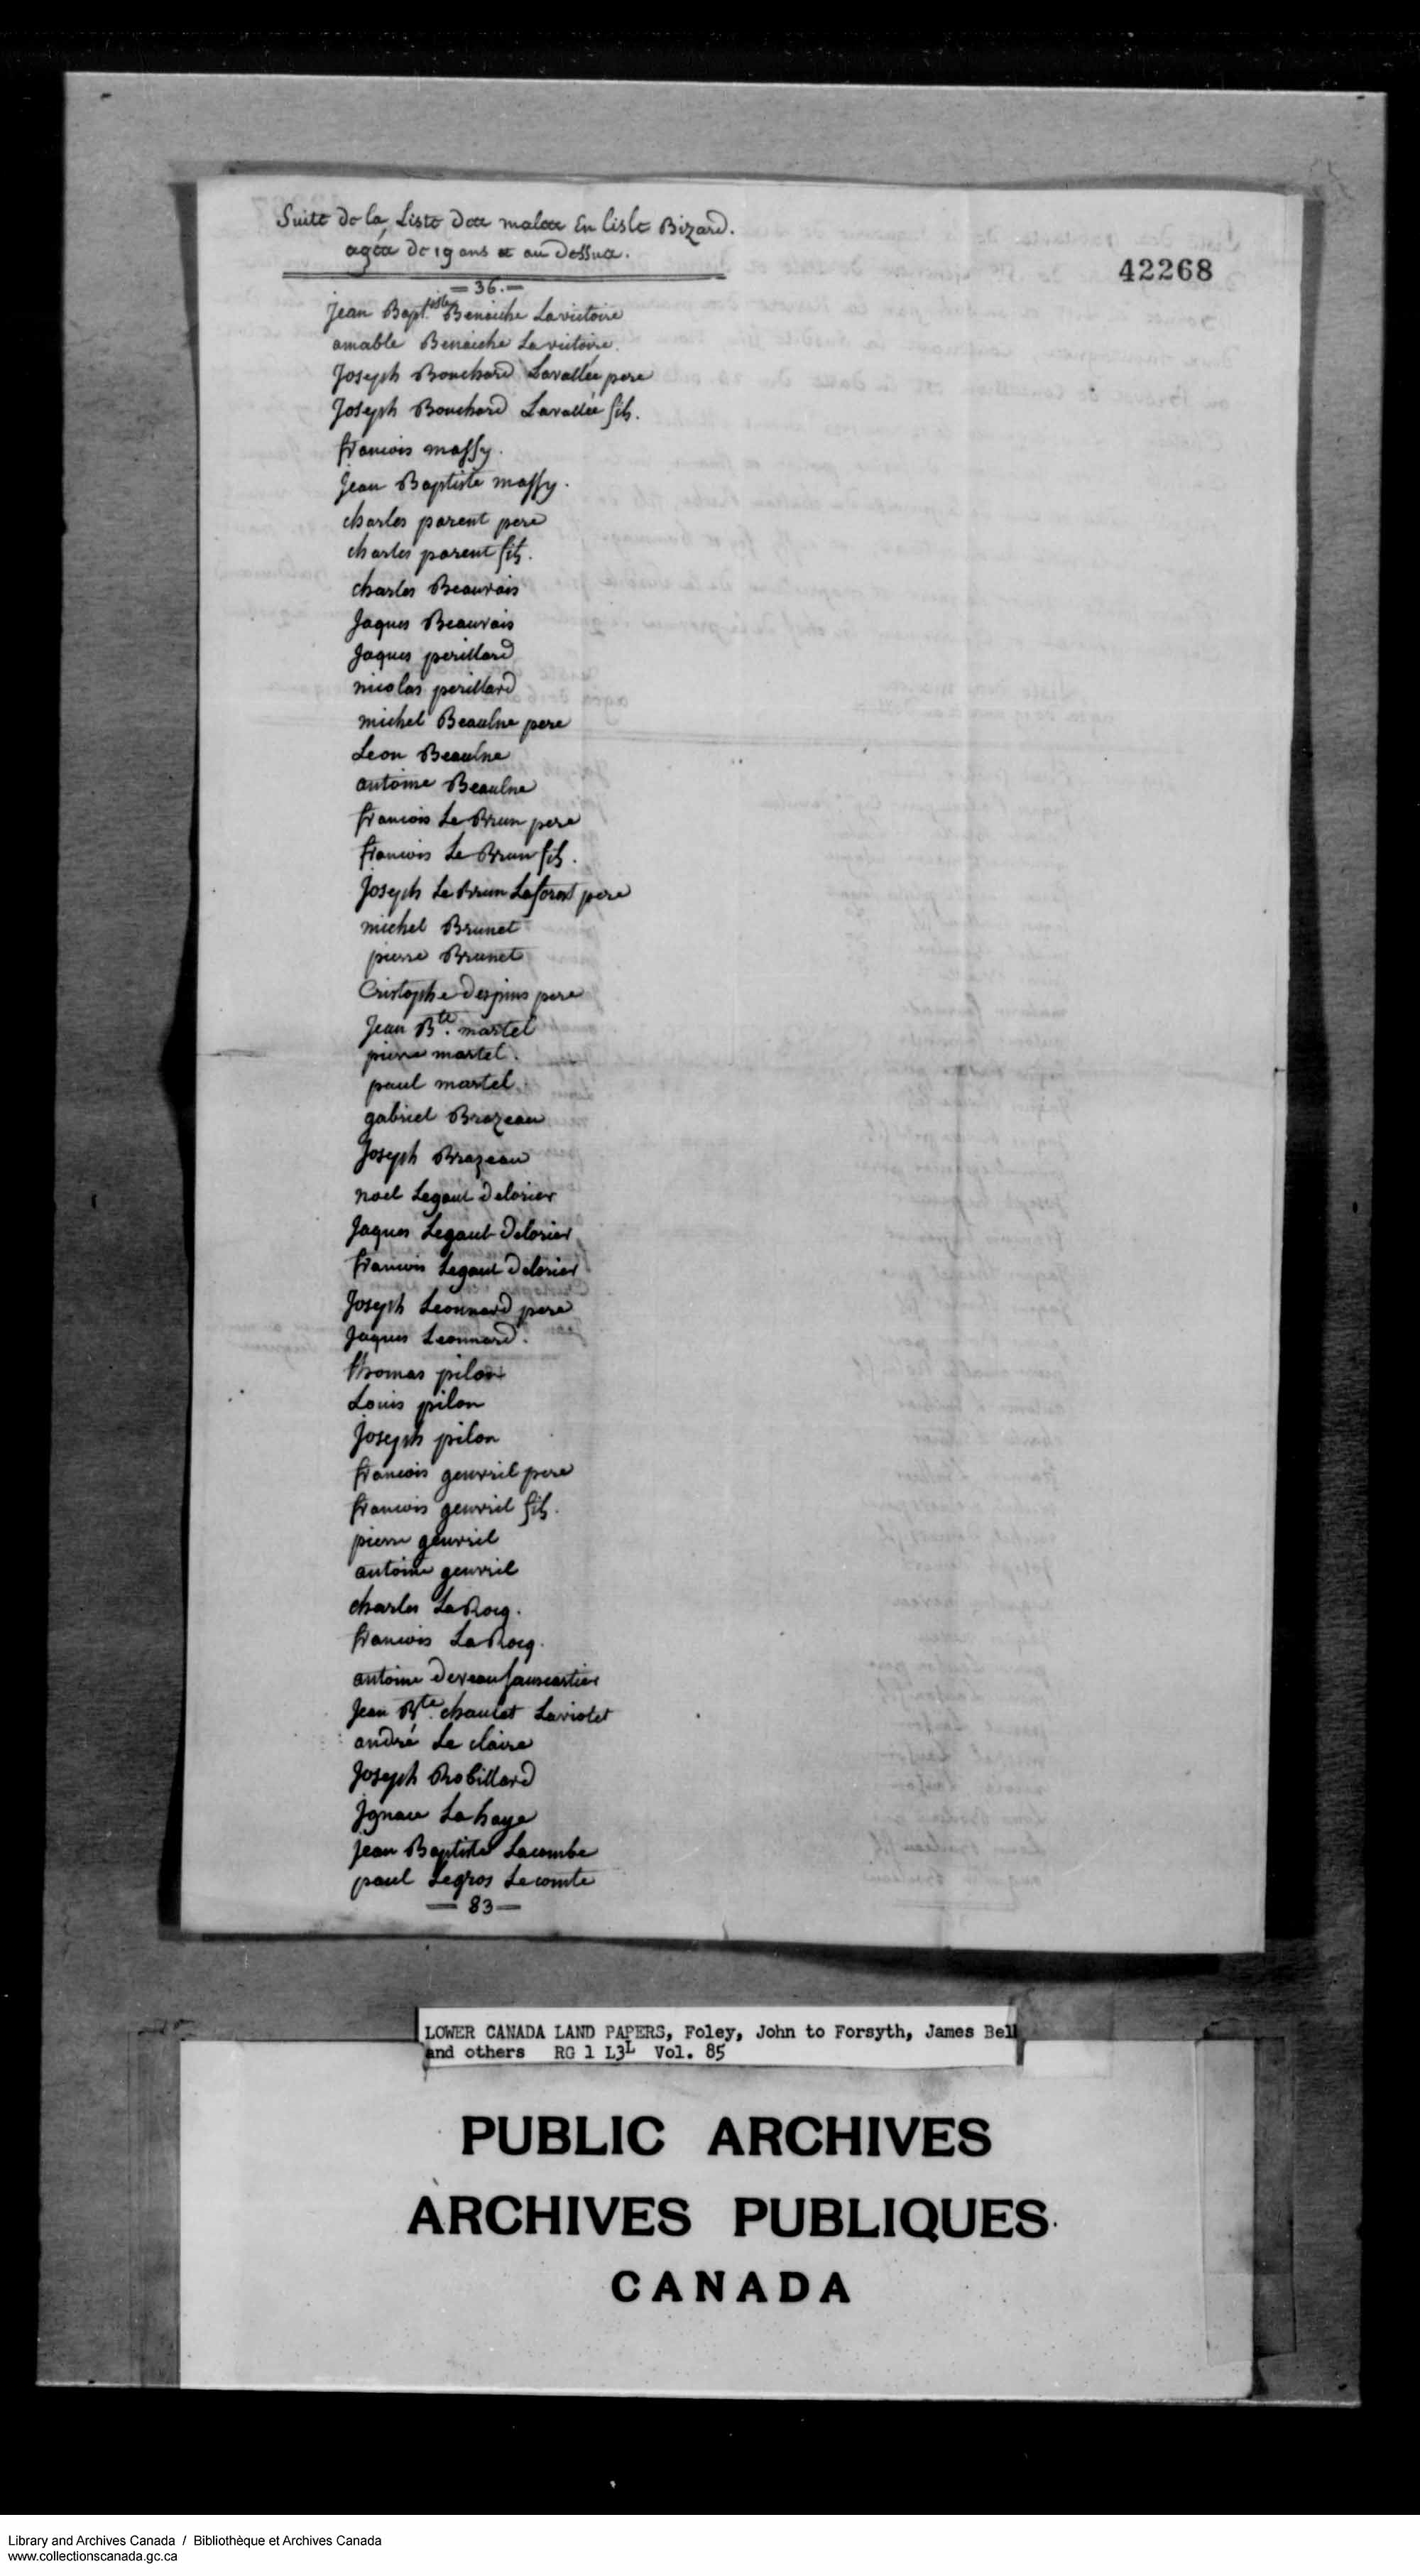 Suite de la Liste des males En lisle Bizard.
agés de 19 ans et au dessus.
42268
— 36. —
jean Bapt.iste Benaiche Lavictoire
amable Benaiche Lavictoire.
Joseph Bouchard Lavallée pere
Joseph Bouchard Lavallée fils.
francois massy.
jean Baptiste massy.
charles parent pere
charles parent fils.
charles Beauvais
Jaques Beauvais
Jaques perillard
nicolas perillard
michel Beaulne pere
Leon Beaulne
antoine Beaulne
francois Le Brun pere
francois Le Brun fils.
Joseph Le Brun Laforest pere
michel Brunet
pierre Brunet
Cristophe despins pere
Jean Bte. martel
pierre martel.
paul martel.
gabriel Brazeau
Joseph Brazeau
noel Legaut delorier
Jaques Legaut delorier
francois Legaut delorier
Joseph Leonnard pere
Jaques Leonnard.
thomas pilon
Louis pilon
Joseph pilon
francois genvril pere
francois genvril fils.
pierre genvril
antoine genvril
charles LaRocq.
francois LaRocq.
antoine deveau jauscartier
Jean Bte. chaulet Laviolet
andré Le claire
Joseph Robillard
Jgnace Lahaye
jean Baptiste Lacombe
paul Legros Lecomte
— 83 —
LOWER CANADA LAND PAPERS, Foley, John to Forsyth, James Bell
and others RG 1 L3L Vol. 85
PUBLIC ARCHIVES
ARCHIVES PUBLIQUES
CANADA
Library and Archives Canada / Bibliothèque et Archives Canada
www.collectionscanada.gc.ca